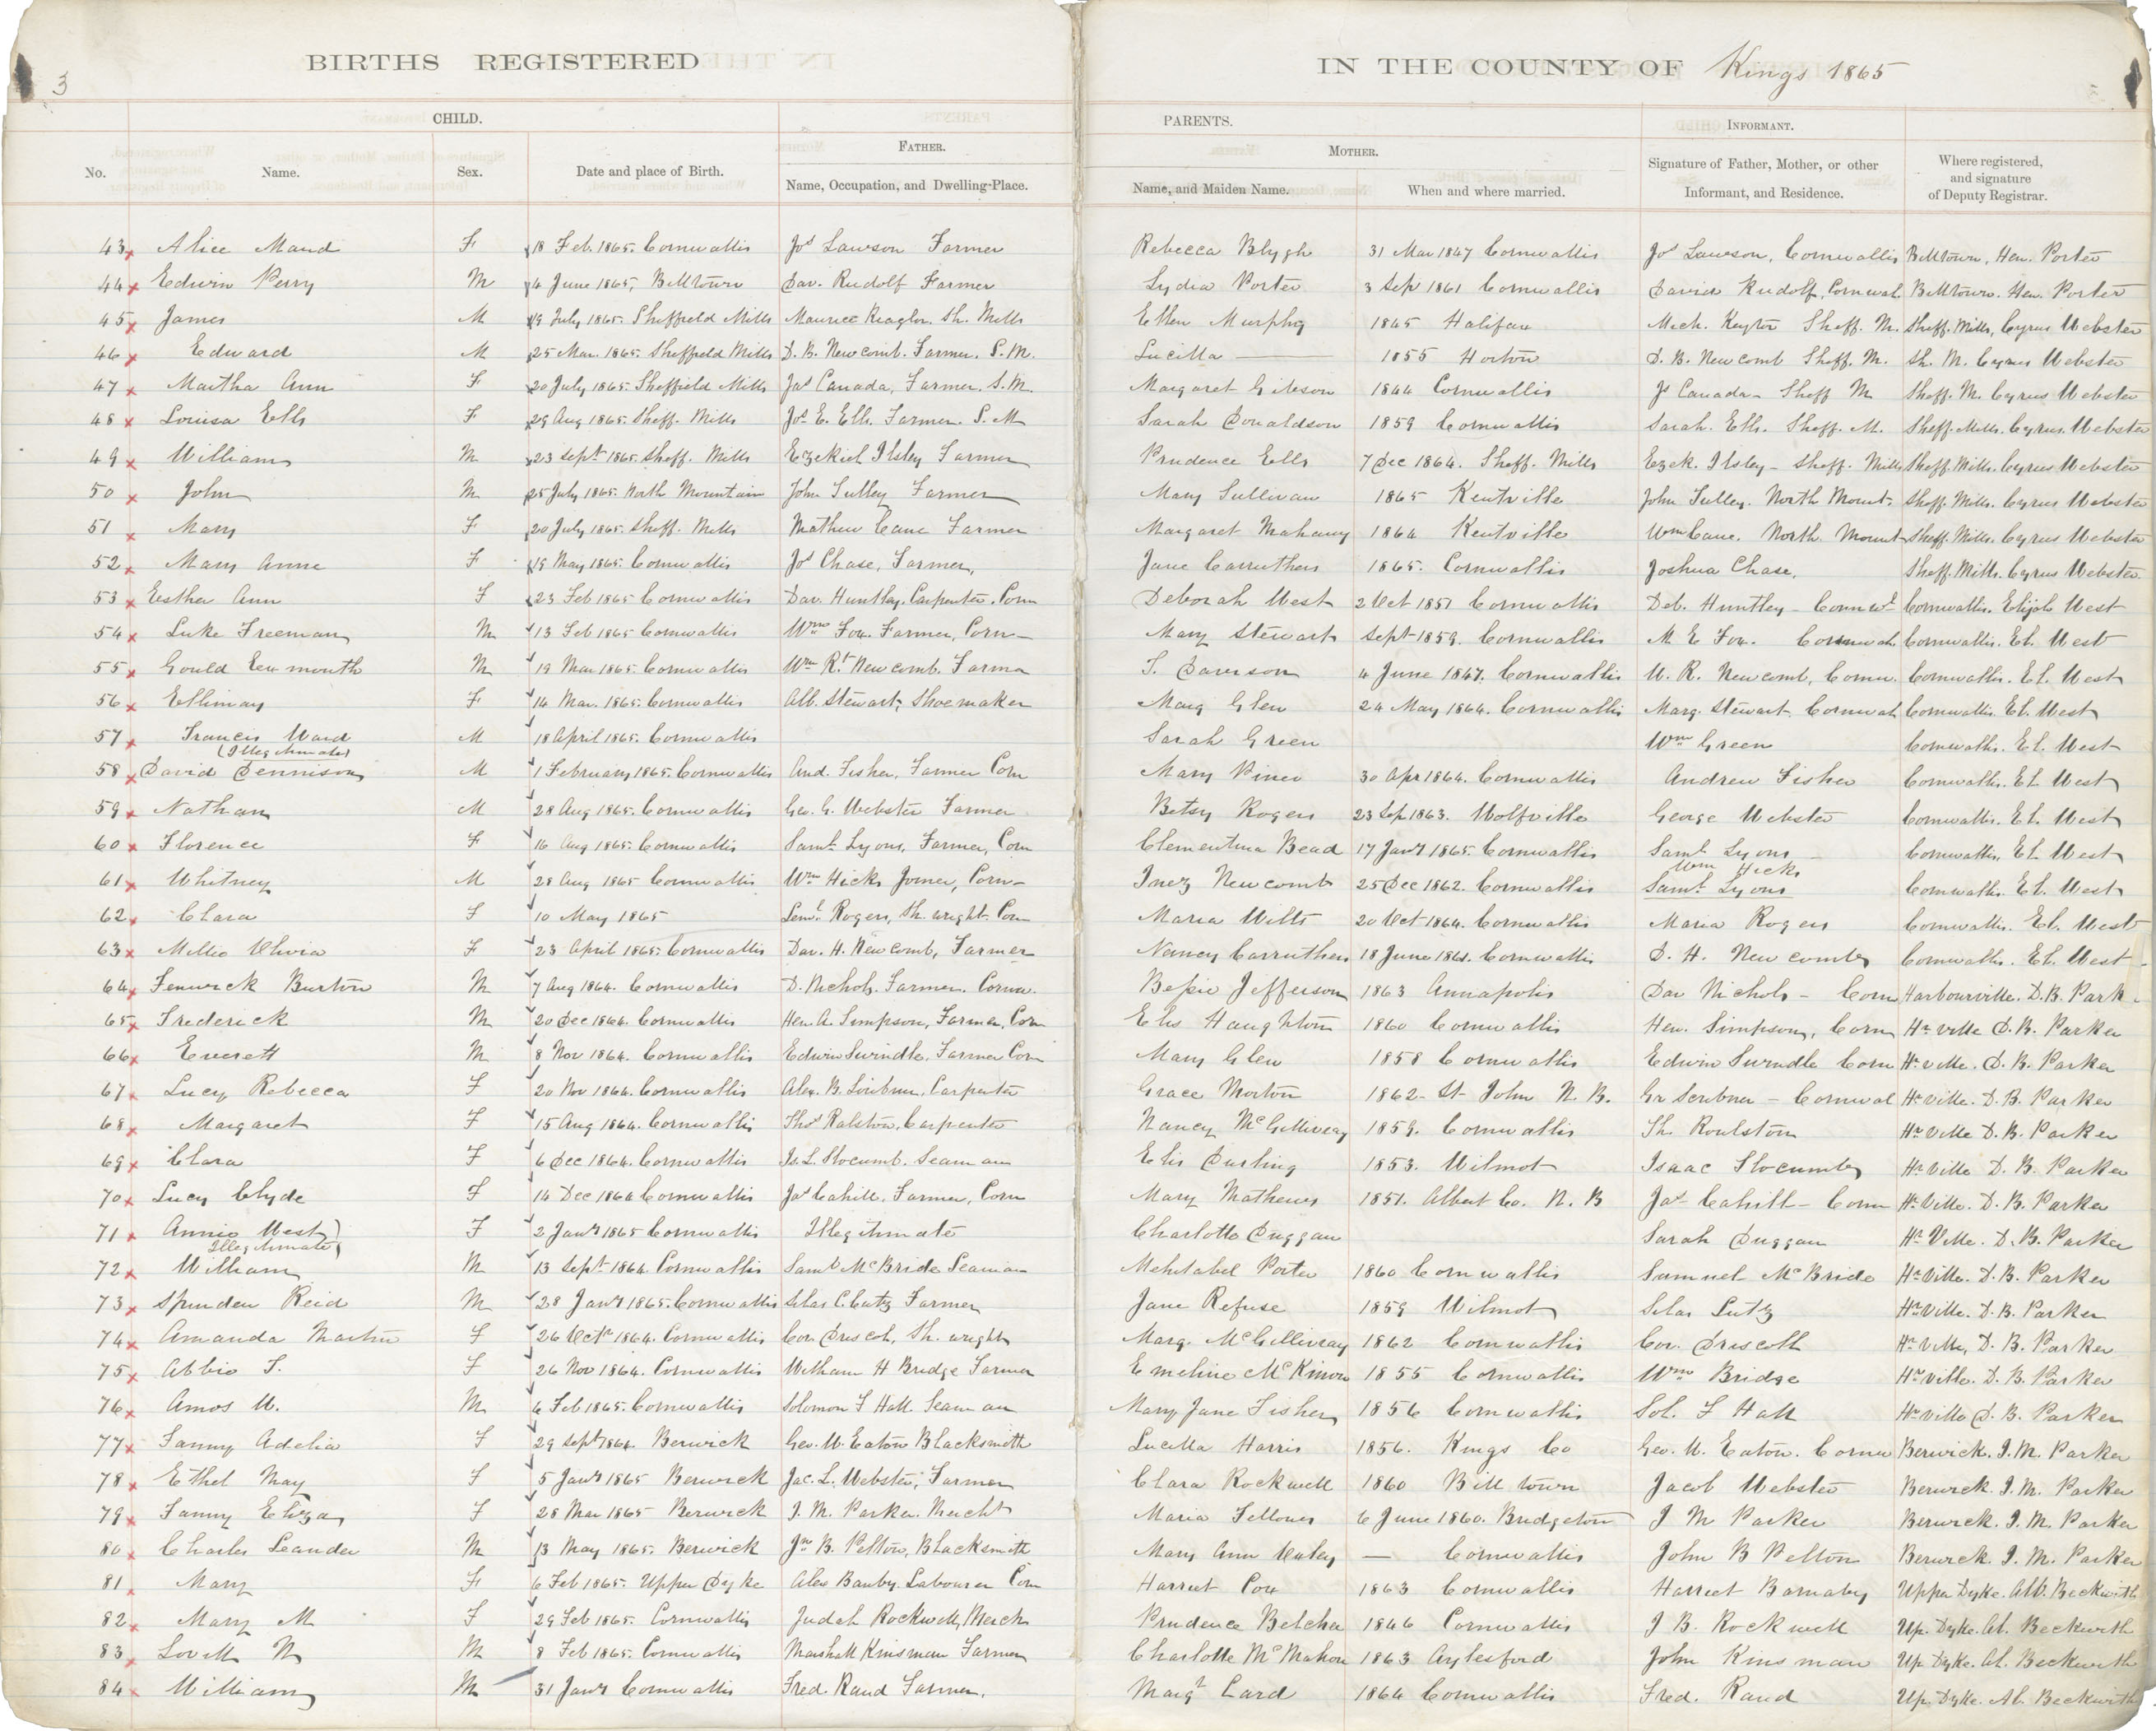 3
BIRTHS REGISTERED IN THE COUNTY OF Kings 1865
CHILD. PARENTS.
FATHER. MOTHER. INFORMANT.
No. Name. Sex. Date and place of Birth. Name, Occupation, and Dwelling-Place. Name, and Maiden Name. When and where married. Signature of Father, Mother, or other Informant, and Residence. Where registered, and signature of Deputy Registrar.
43 Alice Maud F 18 Feb. 1865. Cornwallis Jos Lawson Farmer Rebecca Blygh 31 Mar 1847 Cornwallis Jos Lawson, Cornwallis Billtown, Hen. Porter
44 Edwin Perry M 4 June 1865, Billtown Dav. Rudolf Farmer Lydia Porter 3 Sep 1861 Cornwallis David Rudolf, Cornwal. Billtown. Hen. Porter
45 James M 19 July 1865. Sheffield Mills Maurice Sh. Mills Ellen Murphy 1865 Halifax Mich. Sheff. M. Sheff. Mills, Cyrus Webster
46 Edward M 25 Mar. 1865. Sheffield Mills D. B. Newcomb. Farmer. S. M. Lucilla — 1855 Horton D. B. Newcomb Sheff. M. Sh. M. Cyrus Webster
47 Martha Ann F 20 July 1865. Sheffield Mills Jas Canada, Farmer. S. M. Margaret Gibson 1844 Cornwallis Js Canada - Sheff M Sheff. M. Cyrus Webster
48 Louisa Ells F 29 Aug 1865. Sheff. Mills Jos E. Ells. Farmer. S. M Sarah Donaldson 1859 Cornwallis Sarah. Ells. Sheff. M. Sheff. Mills. Cyrus. Webster
49 William M 23 Sept 1865. Sheff. Mills Ezekiel Ilsley Farmer Prudence Ells 7 Dec 1864. Sheff. Mills Ezek. Ilsley - Sheff. Mills Sheff. Mills. Cyrus Webster
50 John M 25 July 1865. North Mountain John Tulley Farmer Mary Sullivan 1865 Kentville John Tulley. North Mount. Sheff. Mills. Cyrus Webster
51 Mary F 20 July 1865. Sheff. Mills Mathew Cane Farmer Margaret Mahany 1864 Kentville Wm Cane. North. Mount Sheff. Mills. Cyrus Webster
52 Mary Anne F 15 May 1865. Cornwallis Jos Chase, Farmer, Jane Carruthers 1865. Cornwallis Joshua Chase. Sheff. Mills. Cyrus Webster
53 Esther Ann F 23 Feb 1865 Cornwallis Dav. Huntley. Carpenter. Corn Deborah West 2 Oct 1851 Cornwallis Deb. Huntley - Cornwl Cornwallis. Elijah West
54 Luke Freeman M 13 Feb 1865 Cornwallis Wm Fox. Farmer, Corn - Mary Stewart Sept 1859. Cornwallis M E Fox. Cornwal Cornwallis. El. West
55 Gould M 19 Mar 1865. Cornwallis Wm Rt Newcomb. Farmer S. Davison 4 June 1847. Cornwallis W. R. Newcomb, Cornw. Cornwallis. El. West
56 Ellimay F 14 Mar. 1865. Cornwallis Alb. Stewart, Shoemaker Marg Glen 24 May 1864. Cornwallis Marg. Stewart. Cornwal Cornwallis. El. West
57 Francis Ward (Illegitimate) M 18 April 1865. Cornwallis Sarah Green Wm Green Cornwallis. El. West
58 David Dennison M 1 February 1865. Cornwallis And. Fisher, Farmer Corn Mary Pineo 30 Apr 1864. Cornwallis Andrew Fisher Cornwallis. El. West
59 Nathan M 28 Aug 1865. Cornwallis Geo. G. Webster Farmer Betsy Rogers 23 Sep 1863. Wolfville George Webster Cornwallis. El. West
60 Florence F 16 Aug 1865. Cornwallis Saml. Lyons, Farmer, Corn Clementina Bead 17 Jany 1865. Cornwallis Saml Lyons - Cornwallis. El. West
61 Whitney M 28 Aug 1865 Cornwallis Wm Hicks Joiner, Corn - Inez Newcomb 25 Dec 1862. Cornwallis Wm Hicks Saml Lyons Cornwallis. El. West
62 Clara F 10 May 1865 Leml Rogers, Sh. wright. Corn Maria Wilts 20 Oct 1864. Cornwallis Maria Rogers Cornwallis. El. West
63 Millie Olivia F 23 April 1865. Cornwallis Dav. H. Newcomb, Farmer Nancy Carruthers 18 June 1861. Cornwallis D. H. Newcomb Cornwallis. El. West -
64 Fenwick Burton M 7 Aug 1864. Cornwallis D. Nichols. Farmer. Cornw. Bessie Jefferson 1863 Annapolis Dav Nichols - Corn Harbourville. D. B. Park.
65 Frederick M 20 Dec 1864. Cornwallis Hen. A. Simpson, Farmer, Corn Elis Haughton 1860 Cornwallis Hen. Simpson, Corn Hr ville D. B. Parker
66 Everett M 8 Nov 1864. Cornwallis Edwin Swindle. Farmer Corn Mary Glen 1858 Cornwallis Edwin Swindle Corn Hr. ville. D. B. Parker
67 Lucy Rebecca F 20 Nov 1864. Cornwallis Alex. B. Scribner. Carpenter Grace Morton 1862 - St John N. B. Gr Scribner - Cornwal Hr ville. D. B. Parker
68 Margaret F 15 Aug 1864. Cornwallis Thos Ralston, Carpenter Nancy McGillivray 1859. Cornwallis Th. Roulston Hr Ville D. B. Parker
69 Clara F 6 Dec 1864. Cornwallis Is. L. Slocumb. Seaman Elis Durling 1853. Wilmot Isaac Slocumb Hr Ville D. B. Parker
70 Lucy Clyde F 14 Dec 1864 Cornwallis Jas Cahill. Farmer, Corn Mary Mathews 1851. Albert Co. N. B Jas Cahill - Corn Hr. Ville. D. B. Parker
71 Annie West) Illegitimate) F 2 Jany 1865 Cornwallis Illegitimate Charlotte Duggan Sarah Duggan Hr Ville. D. B. Parker
72 William M 13 Sept 1864. Cornwallis Saml McBride Seaman Mehitabel Porter 1860 Cornwallis Samuel McBride Hr Ville. D. B. Parker
73 Spruden Reid M 28 Jany 1865. Cornwallis Silas C. Lutz Farmer Jane Refuse 1859 Wilmot Silas Lutz Hr Ville. D. B. Parker
74 Amanda Martin F 26 Octr 1864. Cornwallis Cor. Driscol, Sh. wright Marg. McGillivray 1862 Cornwallis Cor. Driscoll Hr Ville, D. B. Parker
75 Abbie S. F 26 Nov 1864. Cornwallis William H Bridge Farmer Emeline McKinon 1855 Cornwallis Wm Bridge Hr ville. D. B. Parker
76 Amos W. M 6 Feb 1865. Cornwallis Solomon F Hall Seaman Mary Jane Fisher 1856 Cornwallis Sol. F Hall Hr ville D. B. Parker
77 Fanny Adelia F 29 Sept 1864. Berwick Geo. W. Eaton Blacksmith Lucilla Harris 1856. Kings Co Geo. W. Eaton. Cornw Berwick. I. M. Parker
78 Ethel May F 5 Jany 1865 Berwick Jac. L. Webster, Farmer Clara Rockwell 1860 Bill town Jacob Webster Berwick. I. M. Parker
79 Fanny Eliza F 28 Mar 1865 Berwick I. M. Parker. Mercht Maria Fellows 6 June 1860. Bridgeton I M Parker Berwick. I. M. Parker
80 Charles Leander M 13 May 1865. Berwick Jn B. Pelton, Blacksmith Mary Ann — Cornwallis John B Pelton Berwick. I. M. Parker
81 Mary F 6 Feb 1865. Upper Dyke Alex Banby. Labourer Corn Harriet Cox 1863 Cornwallis Harriet Barnaby Upper Dyke. Alb. Beckwith
82 Mary M F 29 Feb 1865. Cornwallis Judah Rockwell, Merch Prudence Belcher 1846 Cornwallis J B. Rockwell Up. Dyke. Al. Beckwith
83 Lovell N M 8 Feb 1865. Cornwallis Marshall Kinsman Farmer Charlotte McMahon 1863 Aylesford John Kinsman Up Dyke. Al. Beckwith
84 William M 31 Jany Cornwallis Fred. Rand Farmer. Margt Lard 1864 Cornwallis Fred. Rand Up. Dyke. Al. Beckwith